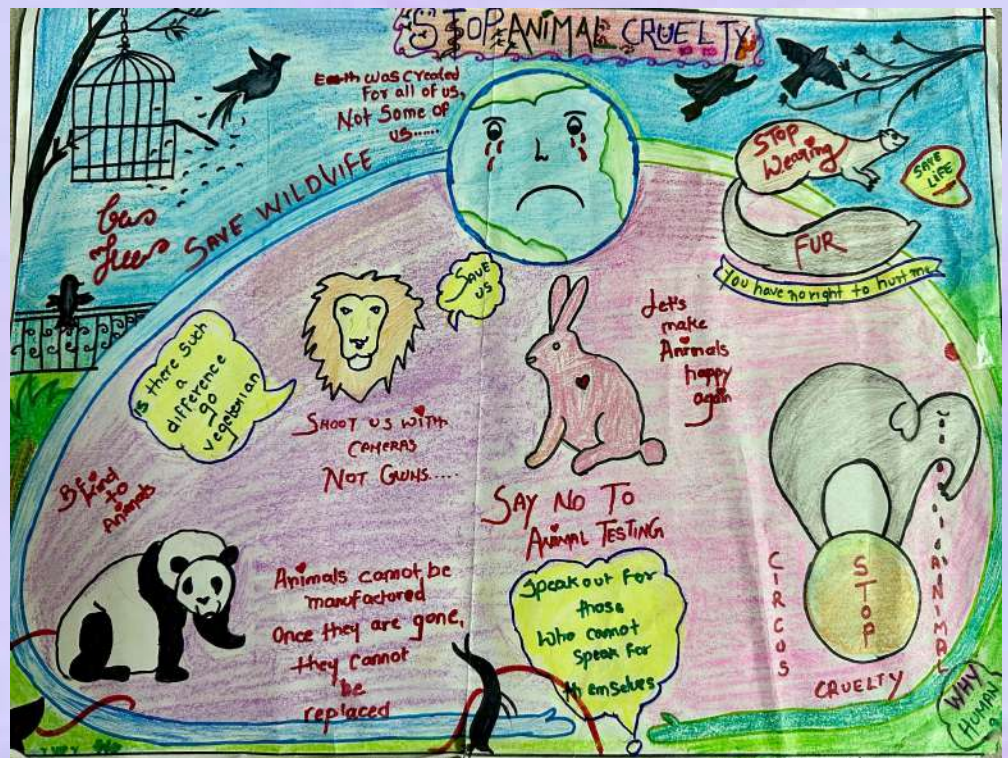 STOP ANIMAL CRUELTY
Earth was created
For all of us,
Not Some of
us......
SAVE WILDVIFE
STOP
Wearing
FUR
SAVE
LIFE
You have no right to hurt me
SAVE
US
is there such
a
difference
go
vegetarian
SHOOT US WITH
CAMERAS
NOT GUNS....
Let's
make
Animals
happy
again
Be kind
to
Animals
SAY NO TO
ANIMAL TESTING
Animals cannot be
manufactored
Once they are gone,
they cannot
be
replaced
Speak out For
those
Who cannot
Speak for
themselves
STOP
CIRCUS
ANIMAL
CRUELTY
WHY
HUMAN